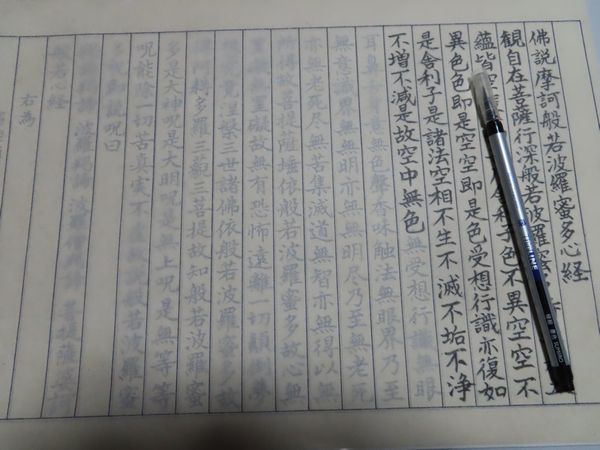 佛説摩訶般若波羅蜜多心経
観自在菩薩行深般若波羅蜜
蘊皆空 舎利子色不異空空不
異色色即是空空即是色受想行識亦復如
是舎利子是諸法空相不生不滅不垢不浄
不増不減是故空中無色無受想行識無眼
耳鼻舌身意無色聲香味触法無眼界乃至
無意識界無無明亦無無明尽乃至無老死
亦無老死尽無苦集滅道無智亦無得以無
所得故菩提薩埵依般若波羅蜜多故心無
罣礙無罣礙故無有恐怖遠離一切顛倒夢
想究竟涅槃三世諸佛依般若波羅蜜多故
得阿耨多羅三藐三菩提故知般若波羅蜜
多是大神呪是大明呪是無上呪是無等等
呪能除一切苦真実不虚故説般若波羅蜜
多呪即説呪曰
羯諦羯諦 波羅羯諦 波羅僧羯諦 菩提薩婆訶
般若心経
右為